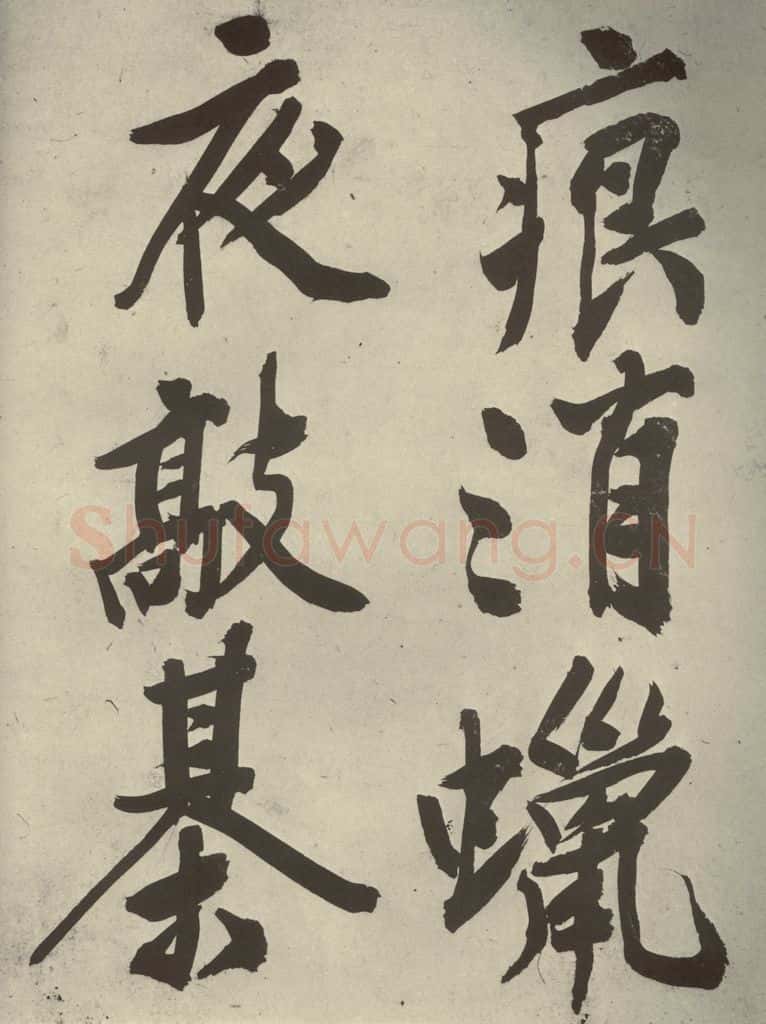 痕消蠟
夜敲棊
Shufawang.CN